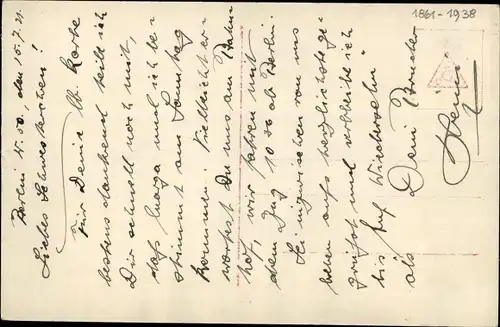 1861-1938
Berlin N.50. den 15.7.21.
Liebes Schwesterchen!
Für Deine lb. Karte
bestens dankend teile ich
Dir schnell noch mit,
daß Marga und ich be-
stimmt am Sonntag
kommen. Vielleicht er-
wartest Du uns am Bahn-
hof, wir fahren mit
dem Zug 10 30 ab Berlin.
Inzwischen von uns
beiden aufs herzlichste ge-
grüßt und verbleibe ich
bis auf Wiedersehn
als Dein Bruder